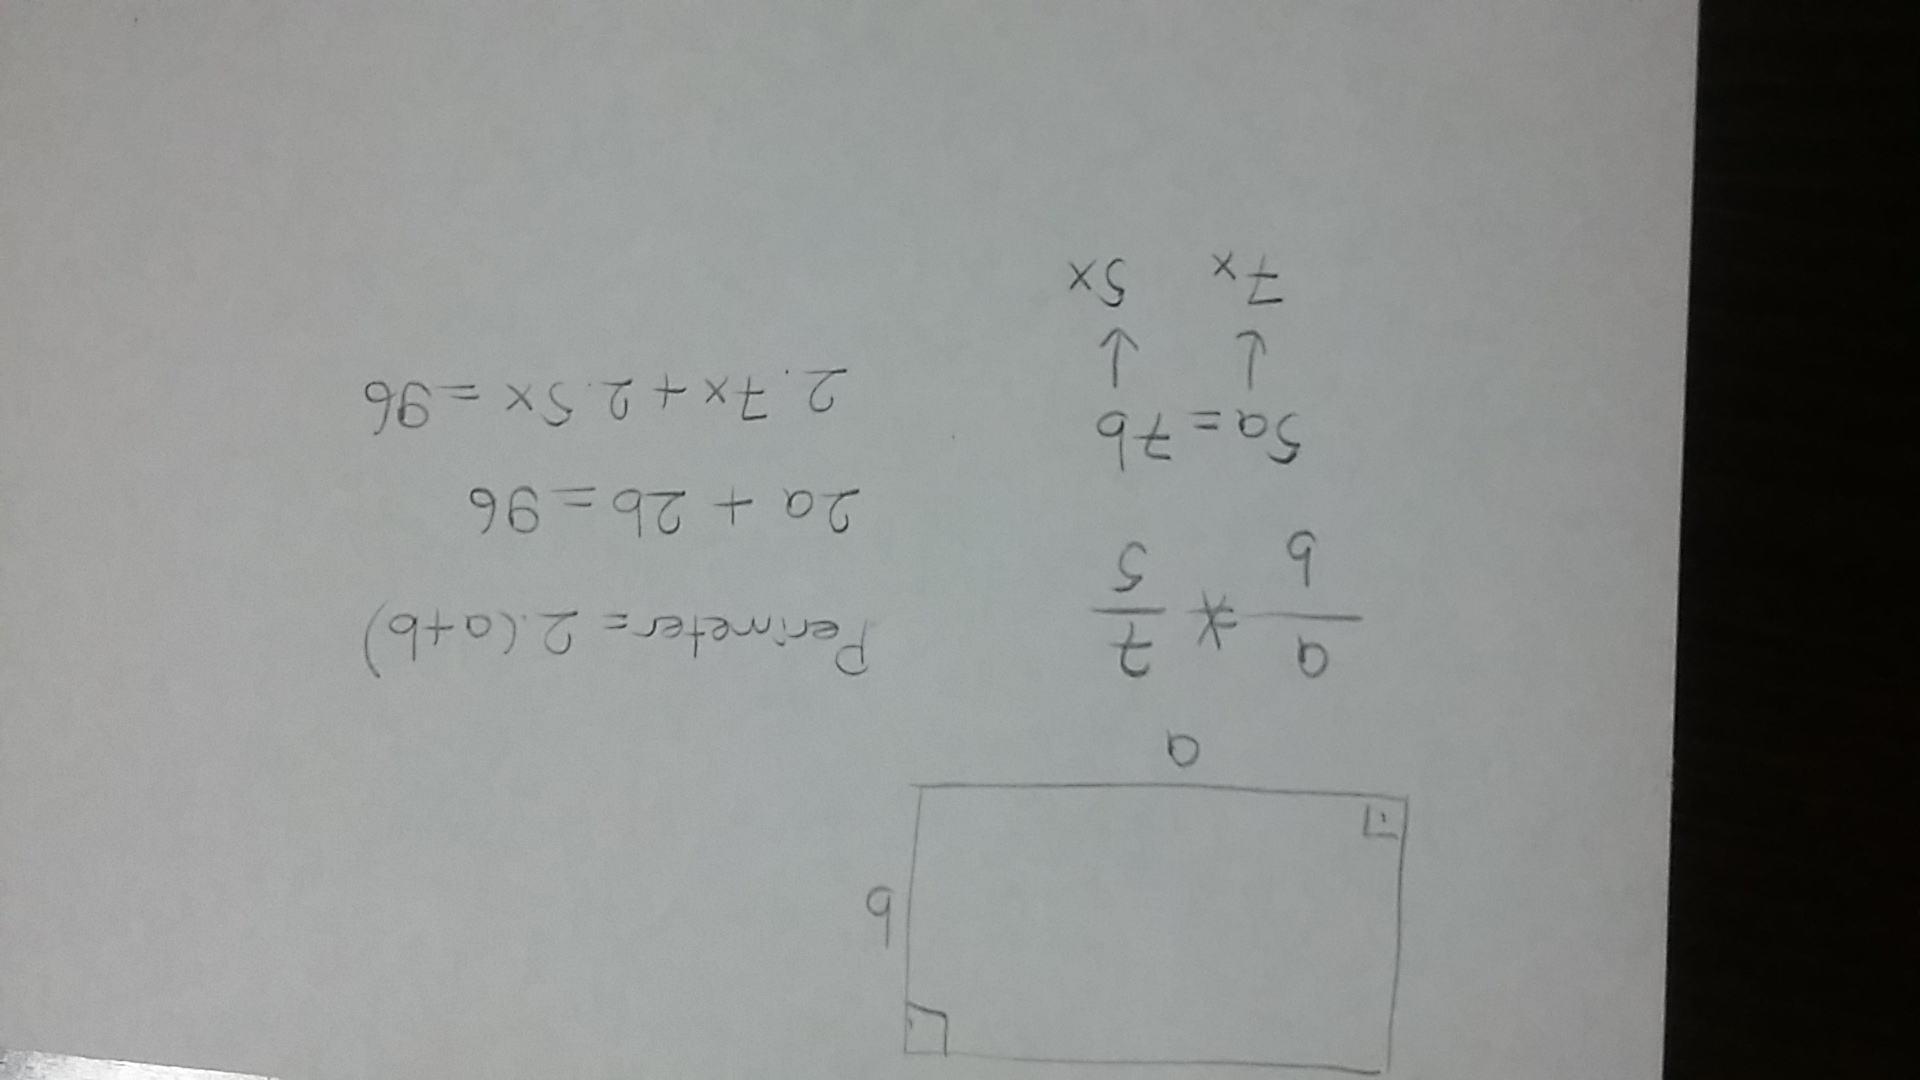 b
a
a/b = 7/5
5a = 7b
↓ ↓
7x 5x
Perimeter = 2.(a+b)
2a + 2b = 96
2.7x + 2.5x = 96